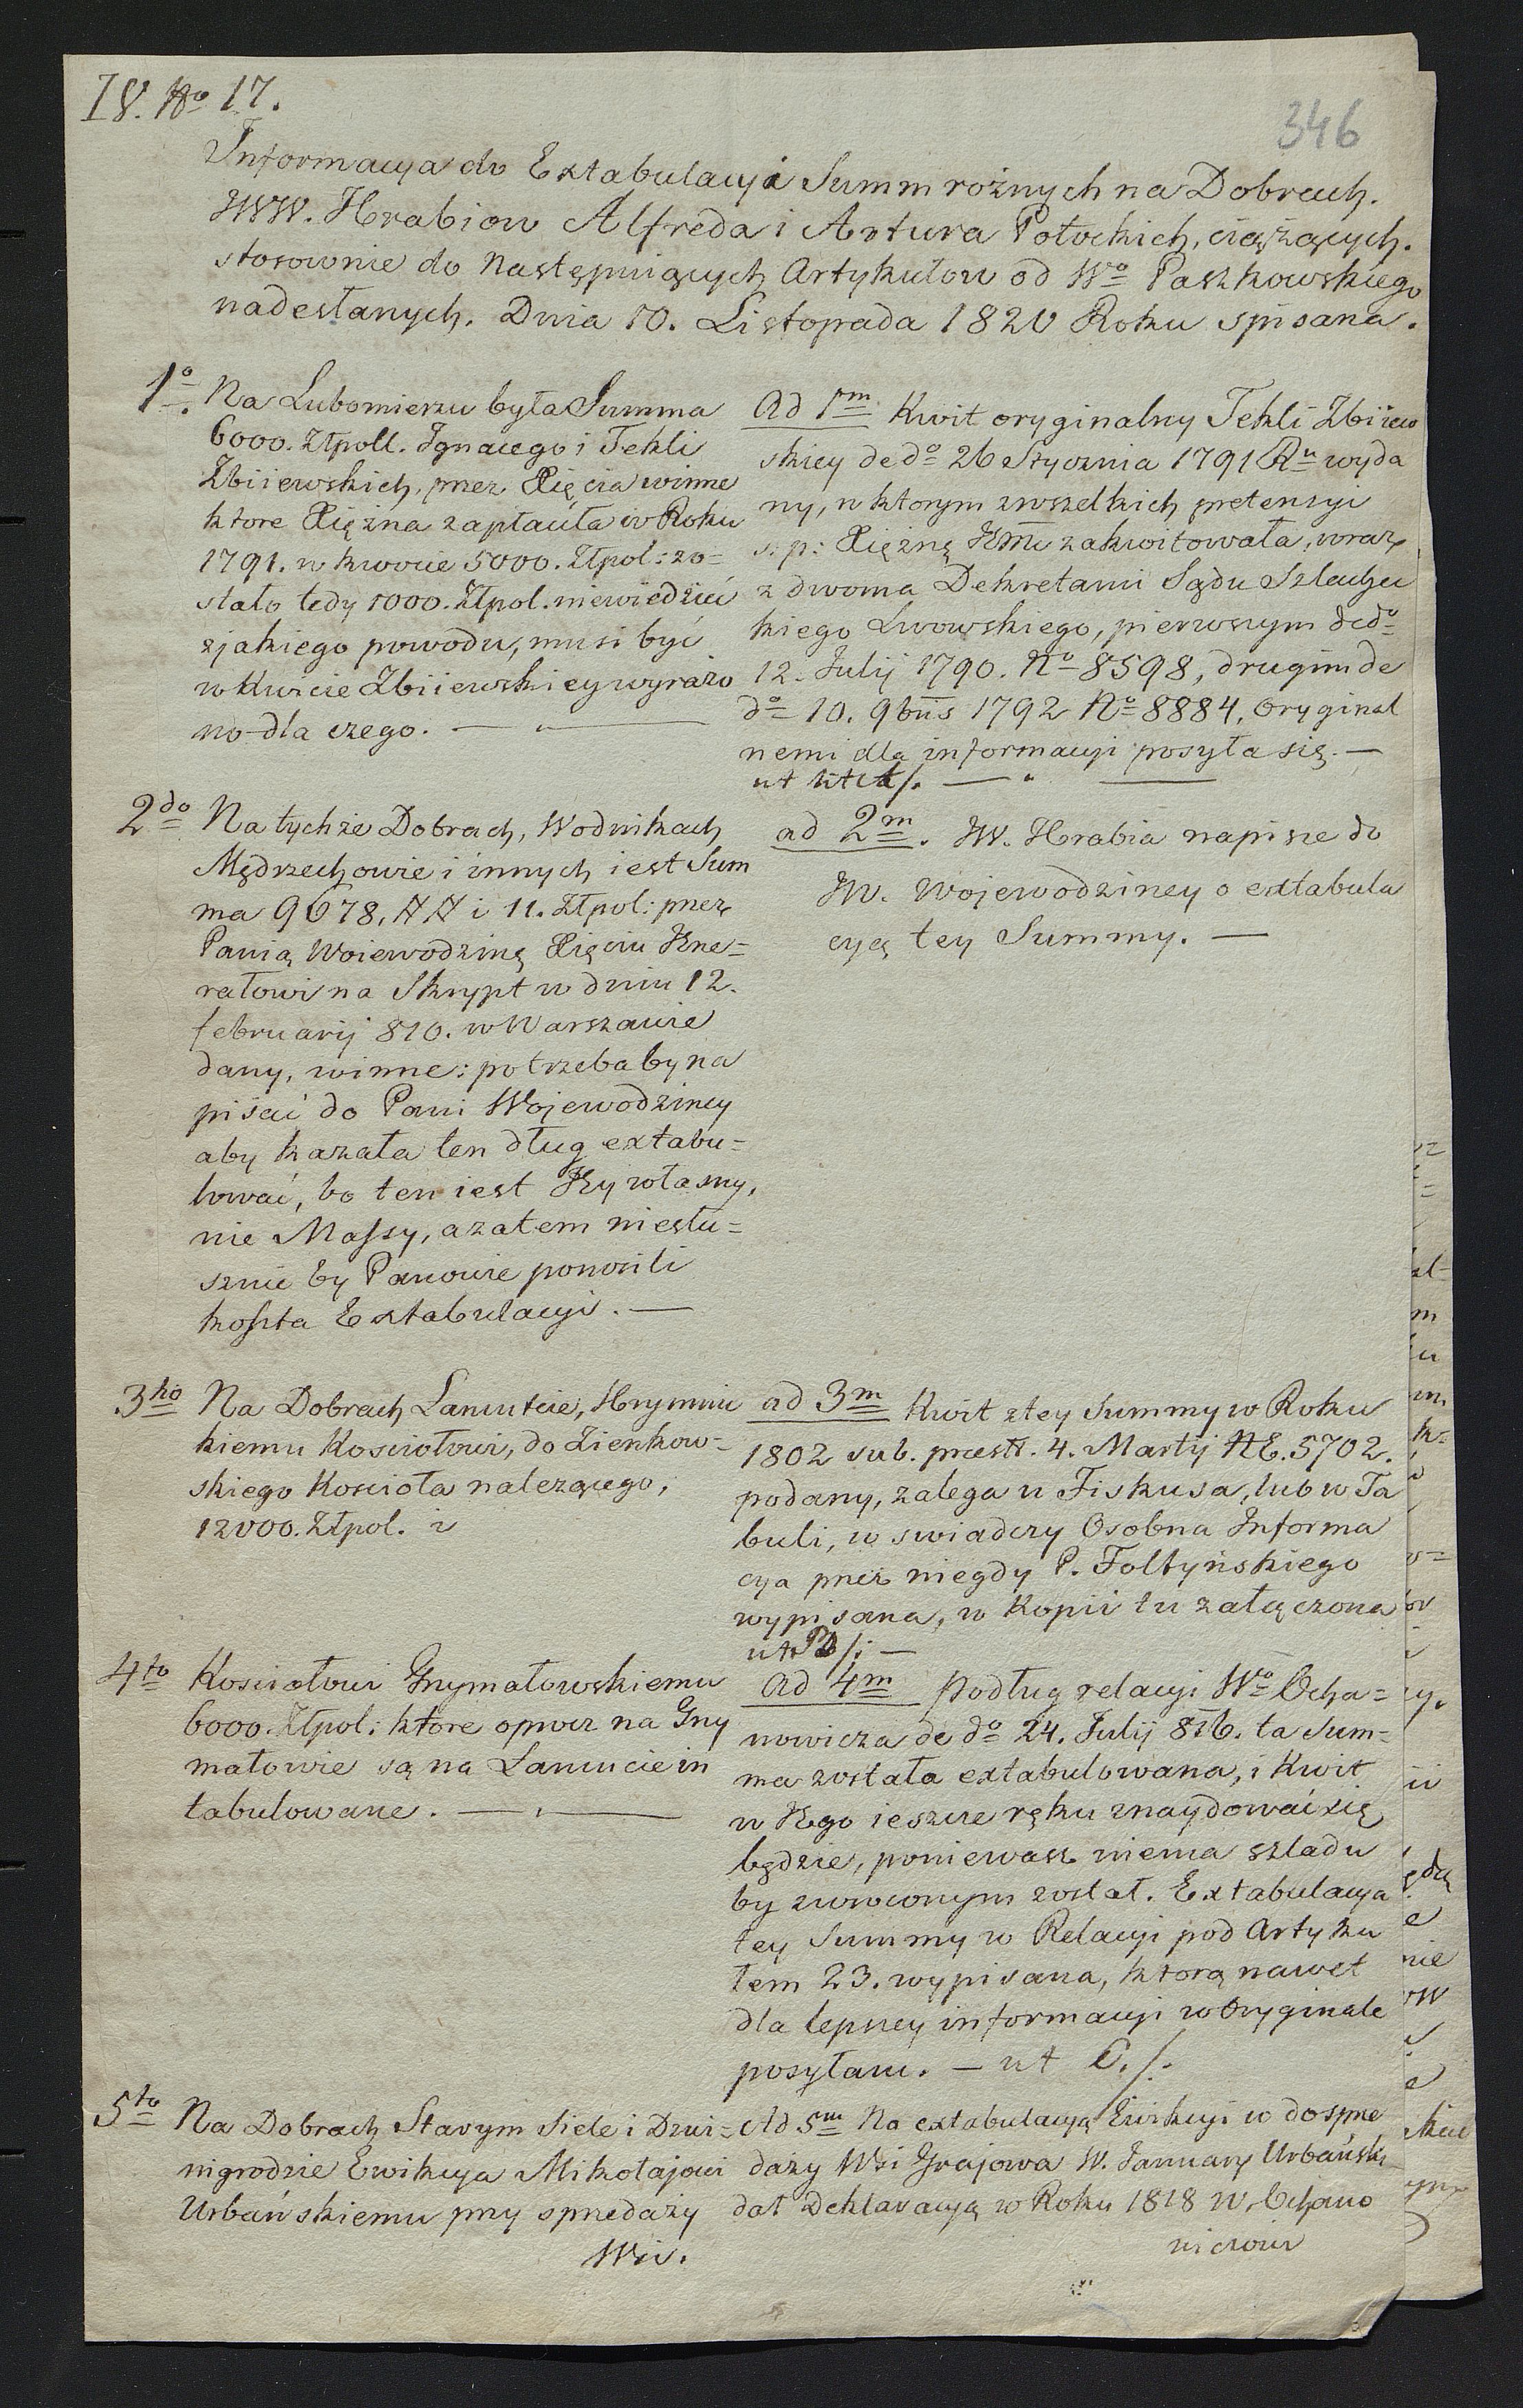 IV. No 17.
346
Informacya do Extabulacyi Summ rożnych na Dobrach.
JWW. Hrabiow Alfreda i Artura Potockich, ciążących.
stosownie do Następuiących Artykułow od Wo Paszkowskiego
nadesłanych. Dnia 10. Listopada 1820 Roku spisana.
1o. Na Lubomierzu była Summa
6000. Złpoll. Ignacego i Tekli
Zbiiewskich, przez Xięcia winne
ktore Xiężna zapłaciła w Roku
1791. w kwocie 5000. Złpol: zo=
stało tedy 1000. Złpol. niewiedzieć
z jakiego powodu, musi być
w Kwicie Zbiiewskiey wyrażo
no dla czego. —
Ad 1m Kwit oryginalny Tekli Zbiiew
skiey de do 26 Stycznia 1791 Ru wyda
ny, w ktorym z wszelkich pretensyi
s: p: Xiężnę Jmć zakwitowała, wraz
z dwoma Dekretami Sądu Szlachec
kiego Lwowskiego, pierwszym de do
12. Julij 1790. No 8598, drugim de
do 10. 9bris 1792 No 8884, Oryginal
nemi dla informacyi posyła się. —
ut /. —
2do Na tychże Dobrach, Wodnikach
Mędrzechowie i innych iest Sum
ma 9678, # # i 11. Złpol: przez
Panią Woiewodzinę Xięciu Jene=
rałowi na Skrypt w dniu 12.
februarij 810. w Warszawie
dany, winne: potrzeba by na
pisać do Pani Wojewodziney
aby kazała ten dług extabu=
lować, bo ten iest Jey własny,
nie Massy, a zatem niesłu=
sznie by Panowie ponosili
koszta Extabulacyi. —
ad 2m. JW. Hrabia napisze do
JW. Wojewodziney o extabula
cyę tey Summy. —
3tio Na Dobrach Łancucie,
kiemu Kosciołowi, do Zienkow=
skiego Kościoła należącego,
12000. Złpol. i
ad 3m Kwit z tey Summy w Roku
1802 sub. praest. 4. Martij NE. 5702.
podany, zalega u Fiskusa, lub w Ta
buli, w swiadczy Osobna Informa
cya przez niegdy P. Foltyńskiego
wypisana, w Kopii tu załączona
ut B /: —
4to Kosciołowi Grzymałowskiemu
6000. Złpol: ktore oprocz na Grzy
małowie są na Łancucie in
tabulowane. —
Ad 4m Podług relacyi Wo Ocha=
nowicza de do 24. Julij 816. ta Sum=
ma została extabulowana, i Kwit
w Jego ieszcze ręku znaydować się
będzie, poniewasz niema szladu
by zwroconym został. Extabulacya
tey Summy w Relacyi pod Artyku
łem 23. wypisana, ktorą nawet
dla lepszey informacyi w Oryginale
posyłam. — ut C. /.
5to Na Dobrach Starym Siele i Dzwi=
nigrodzie Ewikcya Mikołajowi
Urbańskiemu przy sprzedaży
Wsi.
Ad 5m Na extabulacyą Ewikcyi w do sprze
daży Wsi Grajowa W. January Urbański
dał Deklaracyą w Roku 1818 W. Ochano
wiczowi